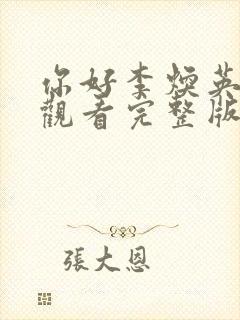 你好李煥英
觀看完整版
張大恩